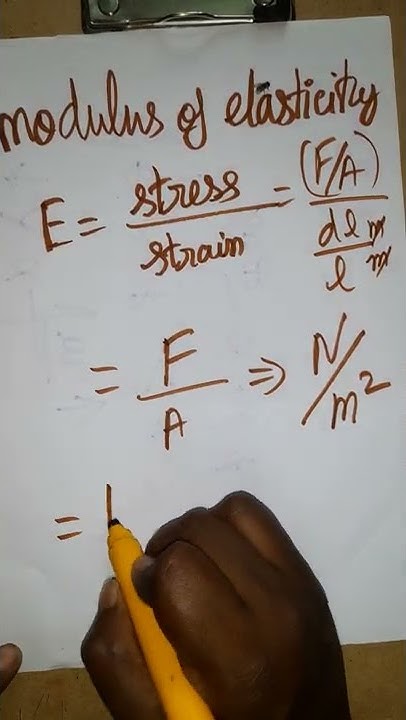 modulus of elasticity
E = stress / strain = (F/A) / (dl m / l m)
= F / A ⇒ N/m²
=